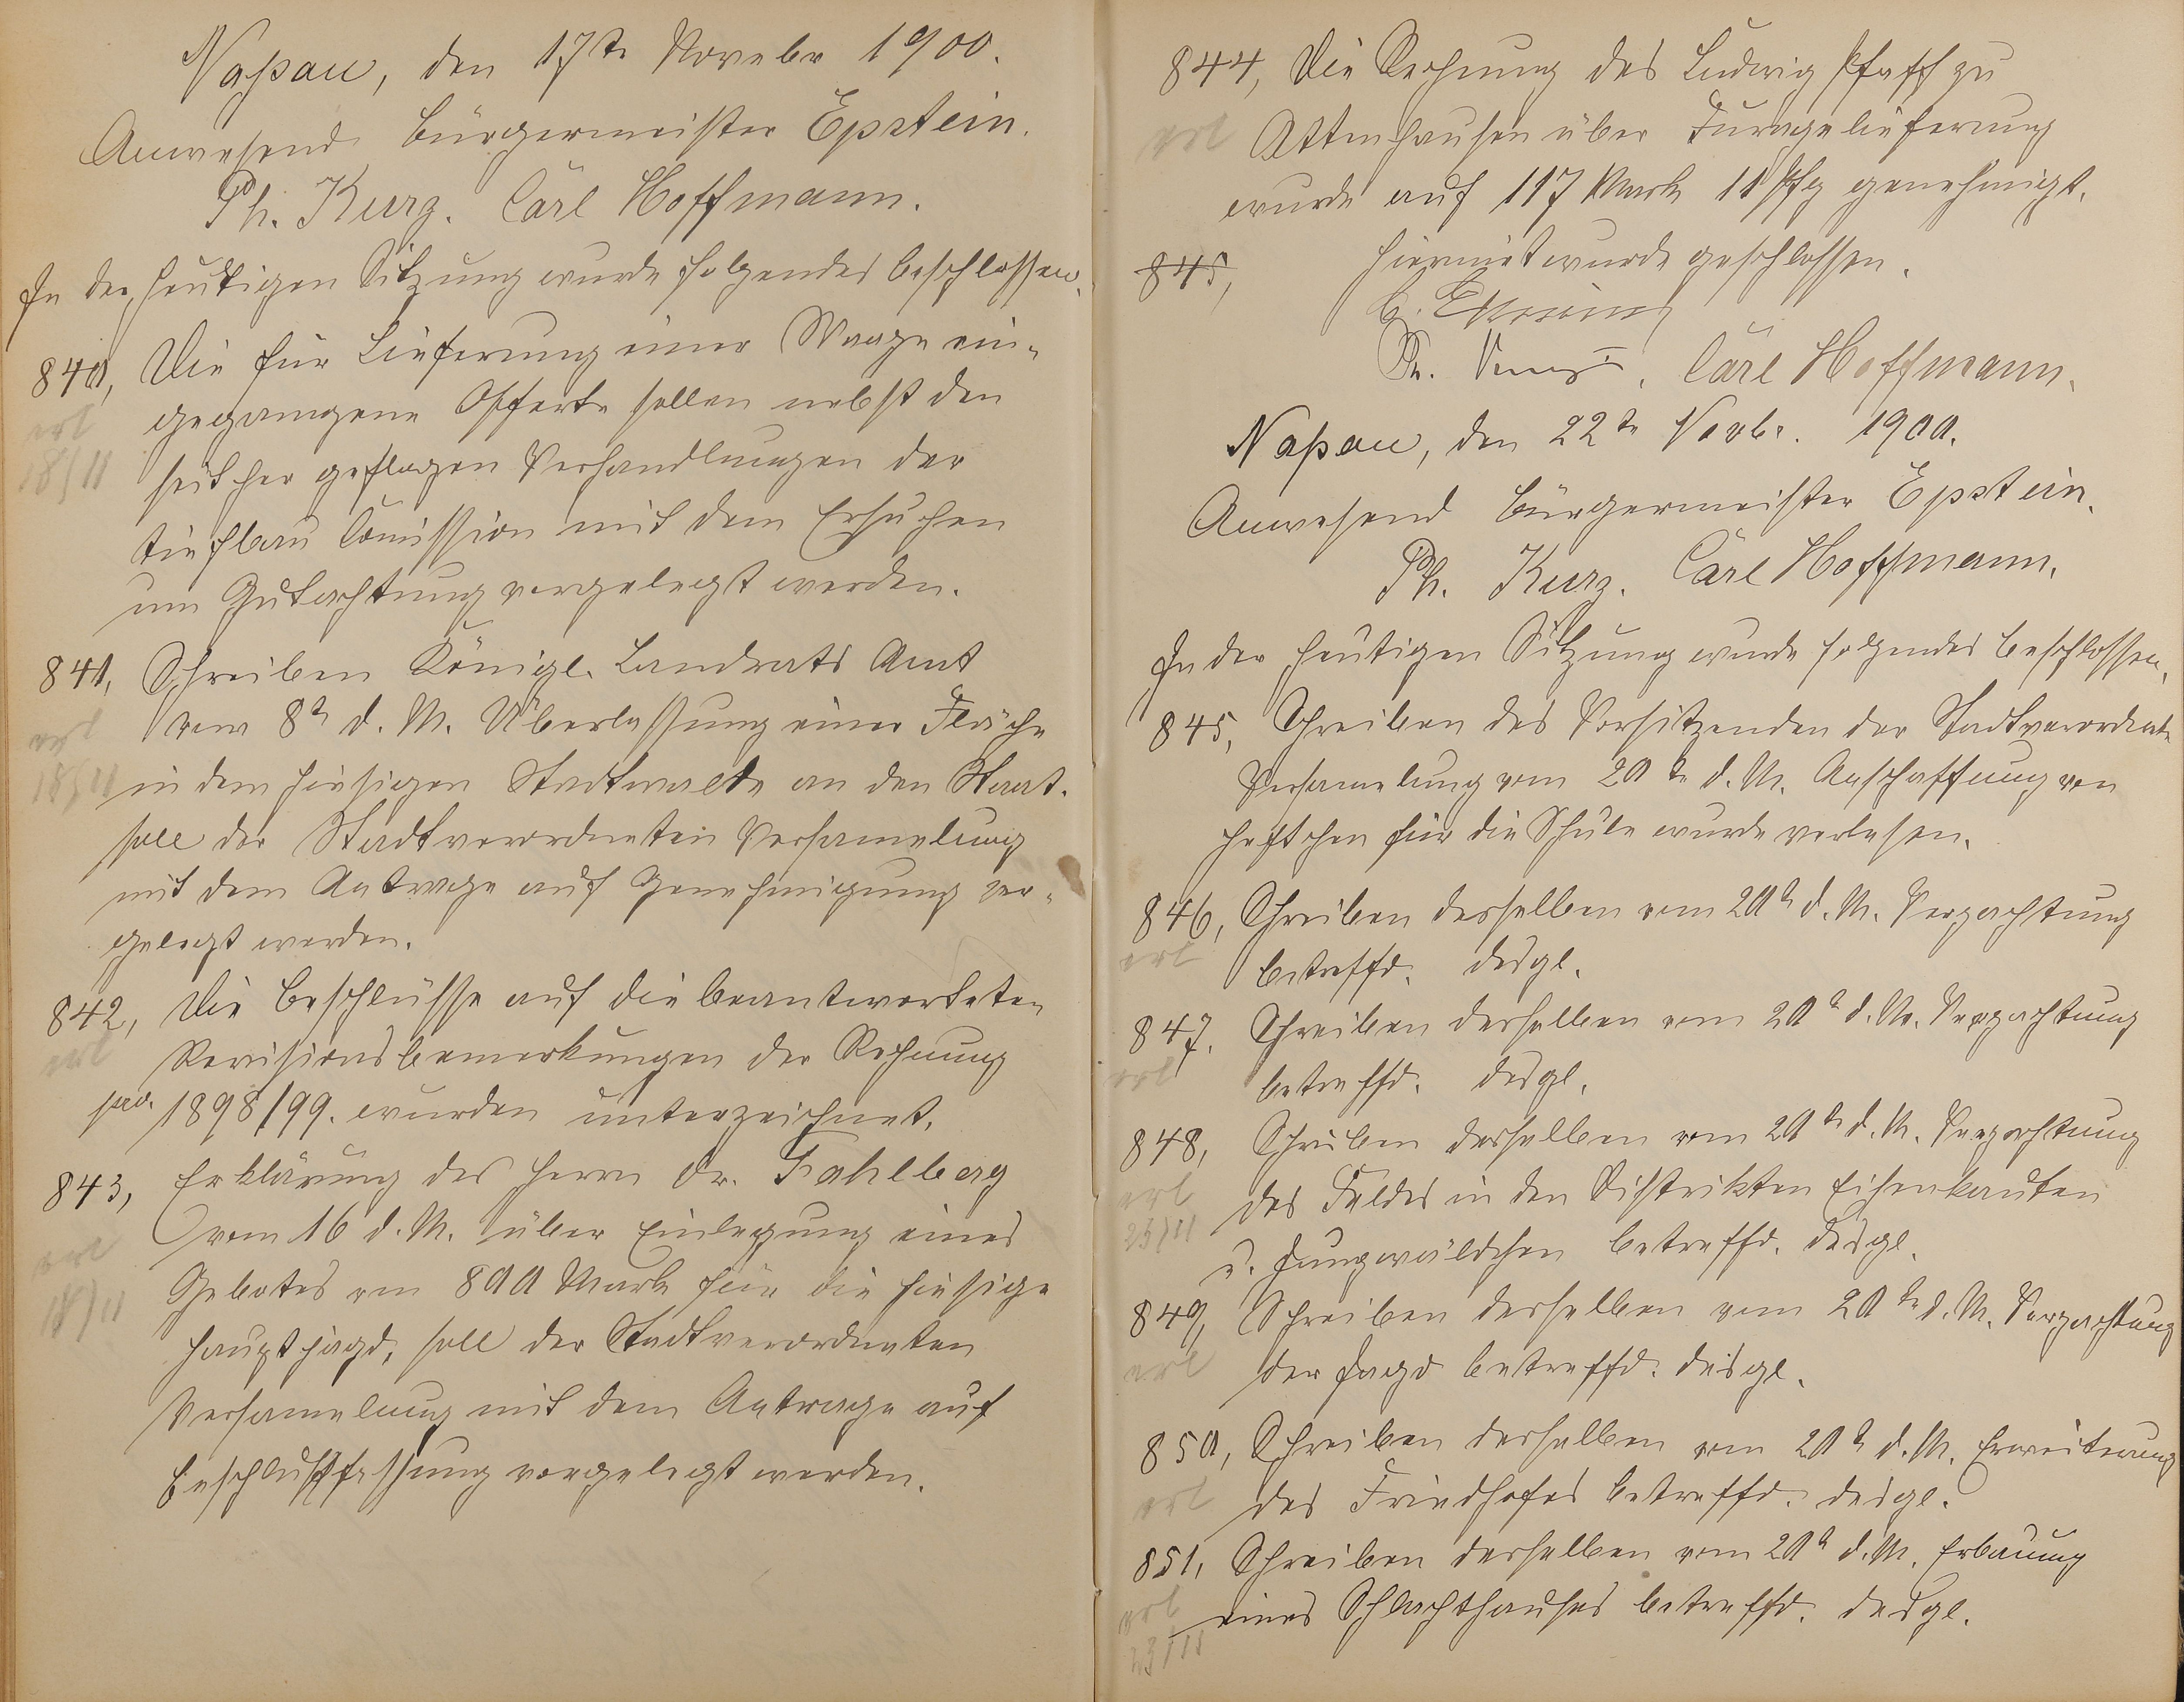 Naßau, den 17te Novebr 1900.
Anwesend Bürgermeister Epstein.
Ph. Kurz. Carl Hoffmann.
In der heutigen Sitzung wurde folgendes beschlossen.
840, Die für Lieferung einer Waage ein-
erl gegangene Offerte sollen nebst den
18/11 seither gepflogen Verhandlungen der
Tiefbau Comission mit dem Ersuchen
um Gutachtung vorgelegt werden.
841, Schreiben Königl. Landrats Amt
vom 8te d. M. Überlassung einer Fläche
18/11 in dem hiesigen Stadtwalde an den Staat.
soll der Stadtverordneten Versamelung
mit dem Antrage auf Genehmigung vor-
gelegt werden.
842, Die Beschlüsse auf die beantworteten
erl Revisionsbemerkungen der Rechnung
pro. 1898/99. wurden unterzeichnet.
843, Erklärung des Herrn Dr. Fahlberg
vom 16 d. M. über Einlegung eines
erl Gebotes von 800 Mark für die hiesige
18/11 Hauptjagd, soll der Stadtverordneten
Versamelung mit dem Antrage auf
Beschlußfassung vorgelegt werden.
844, Die Rechnung des Ludwig Pfaff zu
erl Attenhausen über Furagelieferung
wurde auf 117 Mark 11 Pfg genehmigt.
845, Hiermit wurde geschlossen.
Ph. Kurz. Carl Hoffmann.
Naßau, den 22te Novbr. 1900.
Anwesend Bürgermeister Epstein.
Ph. Kurz. Carl Hoffmann.
In der heutigen Sitzung wurde folgendes beschlossen.
845, Schreiben des Vorsitzenden der Stadtverordnet
Versamelung vom 20te d. M. Anschaffung von
Heftchen für die Schule wurde verlesen.
846, Schreiben desselben vom 20te d. M. Verpachtung
erl betreffd. desgl.
847. Schreiben desselben vom 20te d. M. Verpachtung
erl betreffd. desgl.
848, Schreiben desselben vom 20te d. M. Verpachtung
erl des Feldes in den Distrikten Eisenkauten
23/11 u. Jungwäldchen betreffd. desgl.
849, Schreiben desselben vom 20te d. M. Verpachtung
erl der Jagd betreffd. desgl.
850, Schreiben desselben vom 20te d. M. Erweiterung
erl des Friedhofes betreffd. desgl.
851, Schreiben desselben vom 20te d. M. Erbauung
erl eines Schlachthauses betreffd. desgl.
23/11